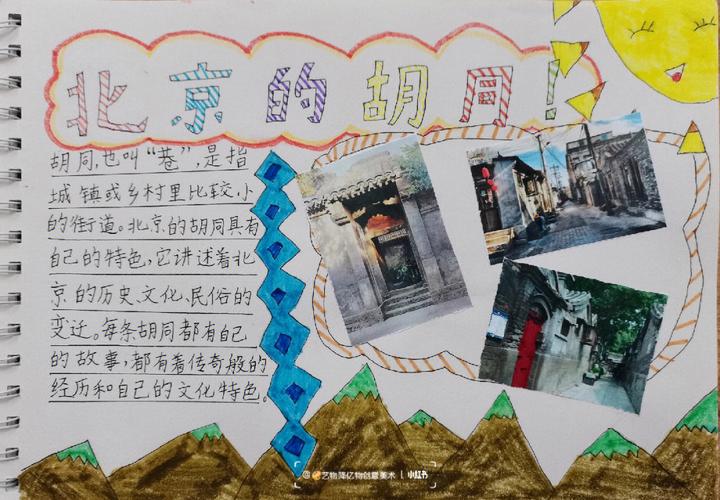 北京的胡同!
胡同,也叫“巷”,是指
城镇或乡村里比较小
的街道。北京的胡同具有
自己的特色,它讲述着北
京的历史文化、民俗的
变迁。每条胡同都有自己
的故事,都有着传奇般的
经历和自己的文化特色。
@艺物降亿物创意美术 小红书